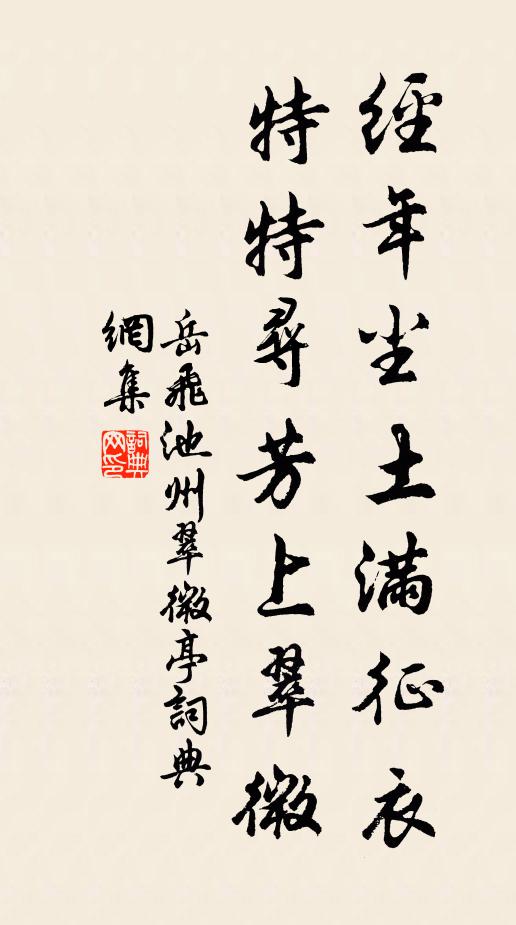 經年尘土满征衣
特特尋芳上翠微
岳飛池州翠微亭詞典
網集
詞典
网印